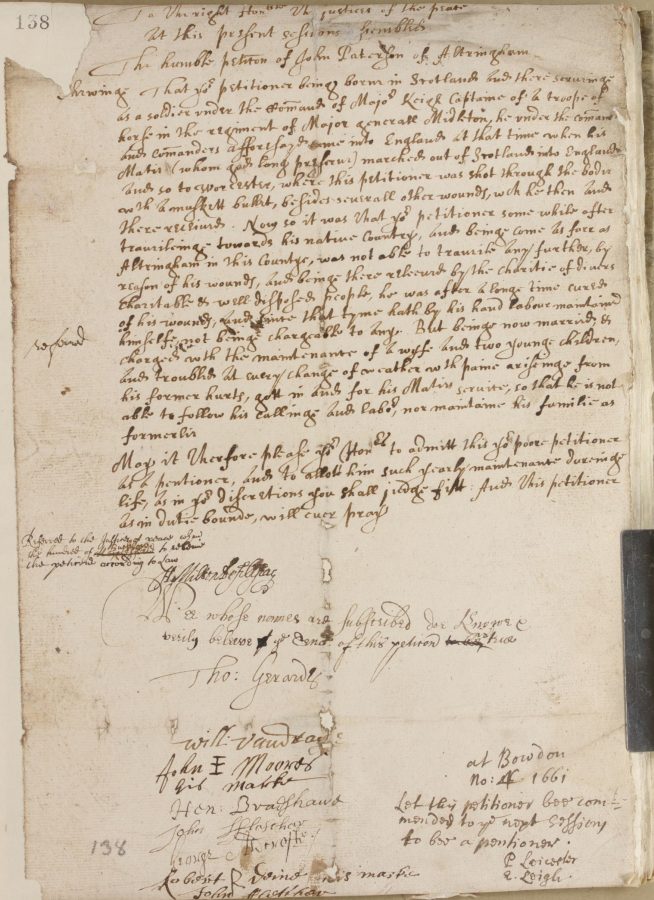 138
To the right Honble the justices of the peace
at this present sessions humblie
The humble petition of John Paterson of Altringham
Shewinge That yor petitioner being borne in Scotland and there serveinge
as a soldier under the Command of Major Keigh Captaine of a troope of
horse in the regiment of Major generall Midleton, he under the Command
and Commanders afforesayd came into England at that time when his
Matie (whom god long preserve) marched out of Scotland into England
and so to Worcester, where this petitioner was shot through the bodie
wth a muskett bullet, besides severall other wounds, wch he then and
there received. Now so it was that yor petitioner some while after
travileinge towards his native Country, and beinge come as farr as
Altringham in this Countye, was not able to travile any further, by
reason of his wounds, and beinge there releeved by the charitie of divers
Charitable & well disposed people, he was after a longe time cured
of his wounds, and since that tyme hath by his hand labour maintained
himselfe, not beinge chargeable to anye. But beinge now married &
charged wth the maintenance of a wyfe and two younge children,
and troubled at every change of weather wth paine ariseinge from
his former hurts, gott in and for his Maties service, so that he is not
able to follow his callinge and labor, nor maintaine his familie as
formerlie
May it therfore please yor Honors to admitt this yor poore petitioner
as a pentioner, and to allott him such yearly maintenance dureinge
life, as in yor discretions you shall judge fitt: And this petitioner
as in dutie bounde, will ever pray
Referred to the Justices of peace within
the hundred of to releeve
the petitioner according to law
Wee whose names are subscribed doe knowe &
verily beleeve ye of this petition true
Tho: Gerarde
Will: Vaudrey
John I Moores
his marke
Hen: Bradshawe
John
George
Robert his marke
John
at Bowdon
No: 4 1661
Let this petitioner bee com-
mended to ye next Sessions
to bee a pentioner.
P Leicester
E. Leigh.
138